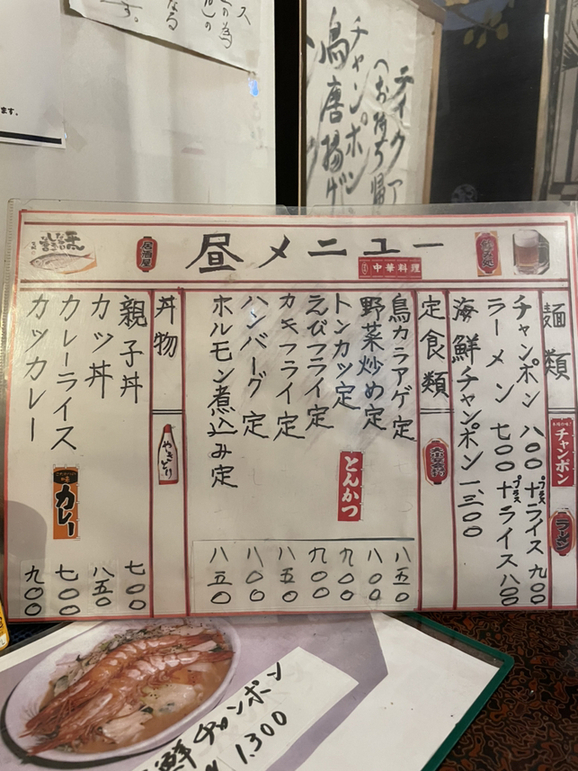 ス
との為
なる
す。
ます。
テイクア
(お持ち帰
チャンポン
鳥唐揚げ
昼メニュー
居酒屋
中華料理
麺類
チャンポン
ラーメン
チャンポン 八〇〇 +プラスライス 九〇〇
ラーメン 七〇〇 +プラスライス 八〇〇
海鮮チャンポン 一、三〇〇
定食類
鳥カラアゲ定 八五〇
野菜炒め定 八〇〇
トンカツ定 九〇〇
えびフライ定 九〇〇
カキフライ定 八五〇
ハンバーグ定 八〇〇
ホルモン煮込み定 八五〇
とんかつ
丼物
やきとり
親子丼 七〇〇
カツ丼 八五〇
カレーライス 七〇〇
カツカレー 九〇〇
カレー
鮮チャンポン
1,300